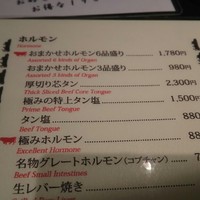 ホルモン
Hormone
おまかせホルモン6品盛り 1,780円
Assorted 6 kinds of Organ
おまかせホルモン3品盛り 980円
Assorted 3 kinds of Organ
厚切り芯タン 2,300円
Thick Sliced Beef Core Tongue
極みの特上タン塩 1,500円
Prime Beef Tongue
タン塩 88
Beef Tongue
極みホルモン 880
Excellent Hormone
名物グレートホルモン(コプチャン)
Beef Small Intestines
生レバー焼き